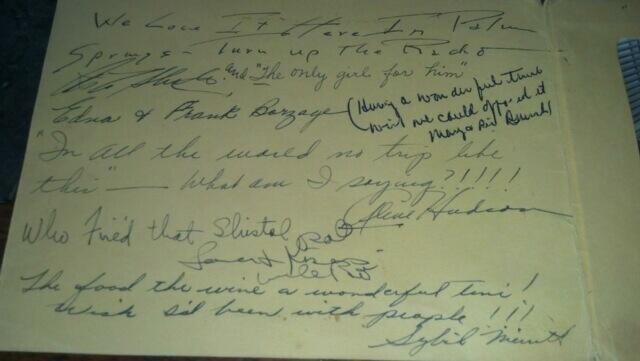 We Love It Here In Palm
Springs - Turn up The Radio
and "The only girl for him"
Edna & Frank Borzage (Having a wonderful time
wish we could afford it
"In all the world no trip like
this" — What am I saying?!!!!
Hudson
Who Fired that Shistol Pat
The food the wine a wonderful time!
Wish I'd been with people!!!
Sybil Merritt